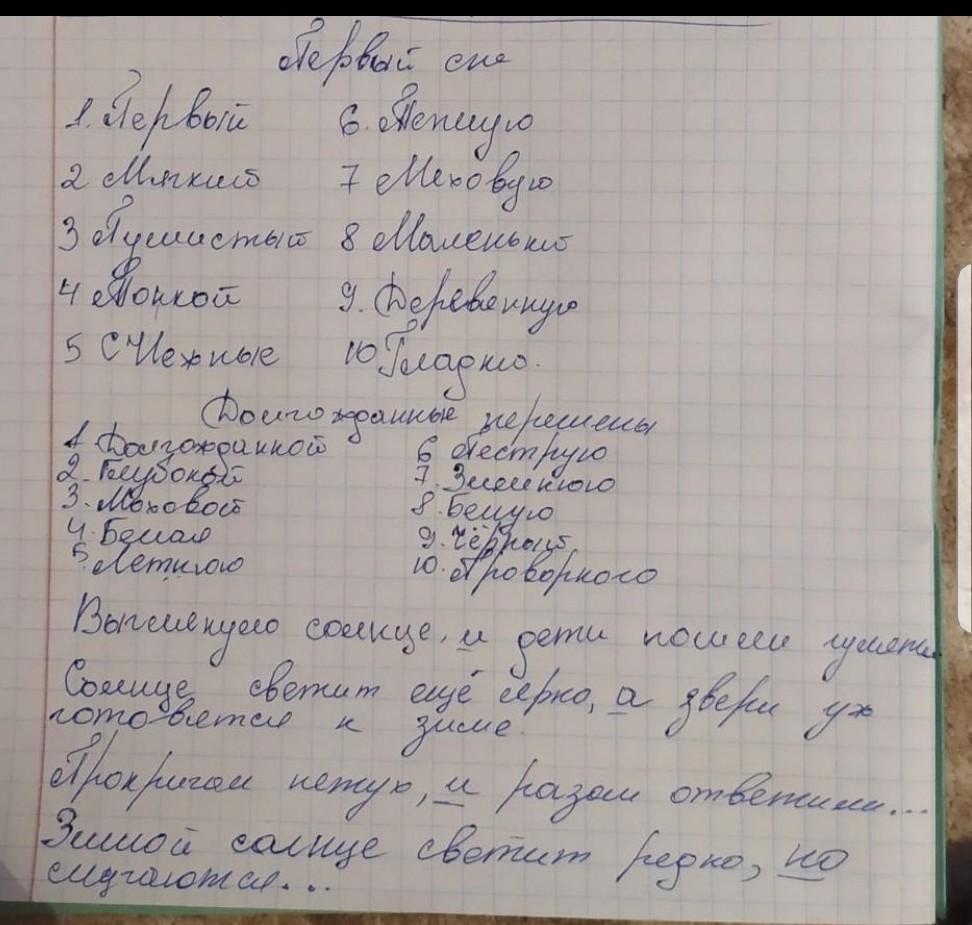 Первый сне
1. Первый 6. Тёплую
2 Мягкий 7 Меховую
3 Пушистый 8 Маленький
4 Тонкой 9. Деревенную
5 Снежные 10 Гладко.
Долгожданные перемены
1 Долгожданной 6 Пеструю
2. Глубокой 7. Зимнюю
3. Моховой 8. Белую
4. Белая 9. Чёрный
5. Летнюю 10. Проворного
Выглянуло солнце, и дети пошли гулять.
Солнце светит ещё ярко, а звери уж
готовятся к зиме.
Прокричал петух, и разом ответили...
Зимой солнце светит редко, но
случаются...